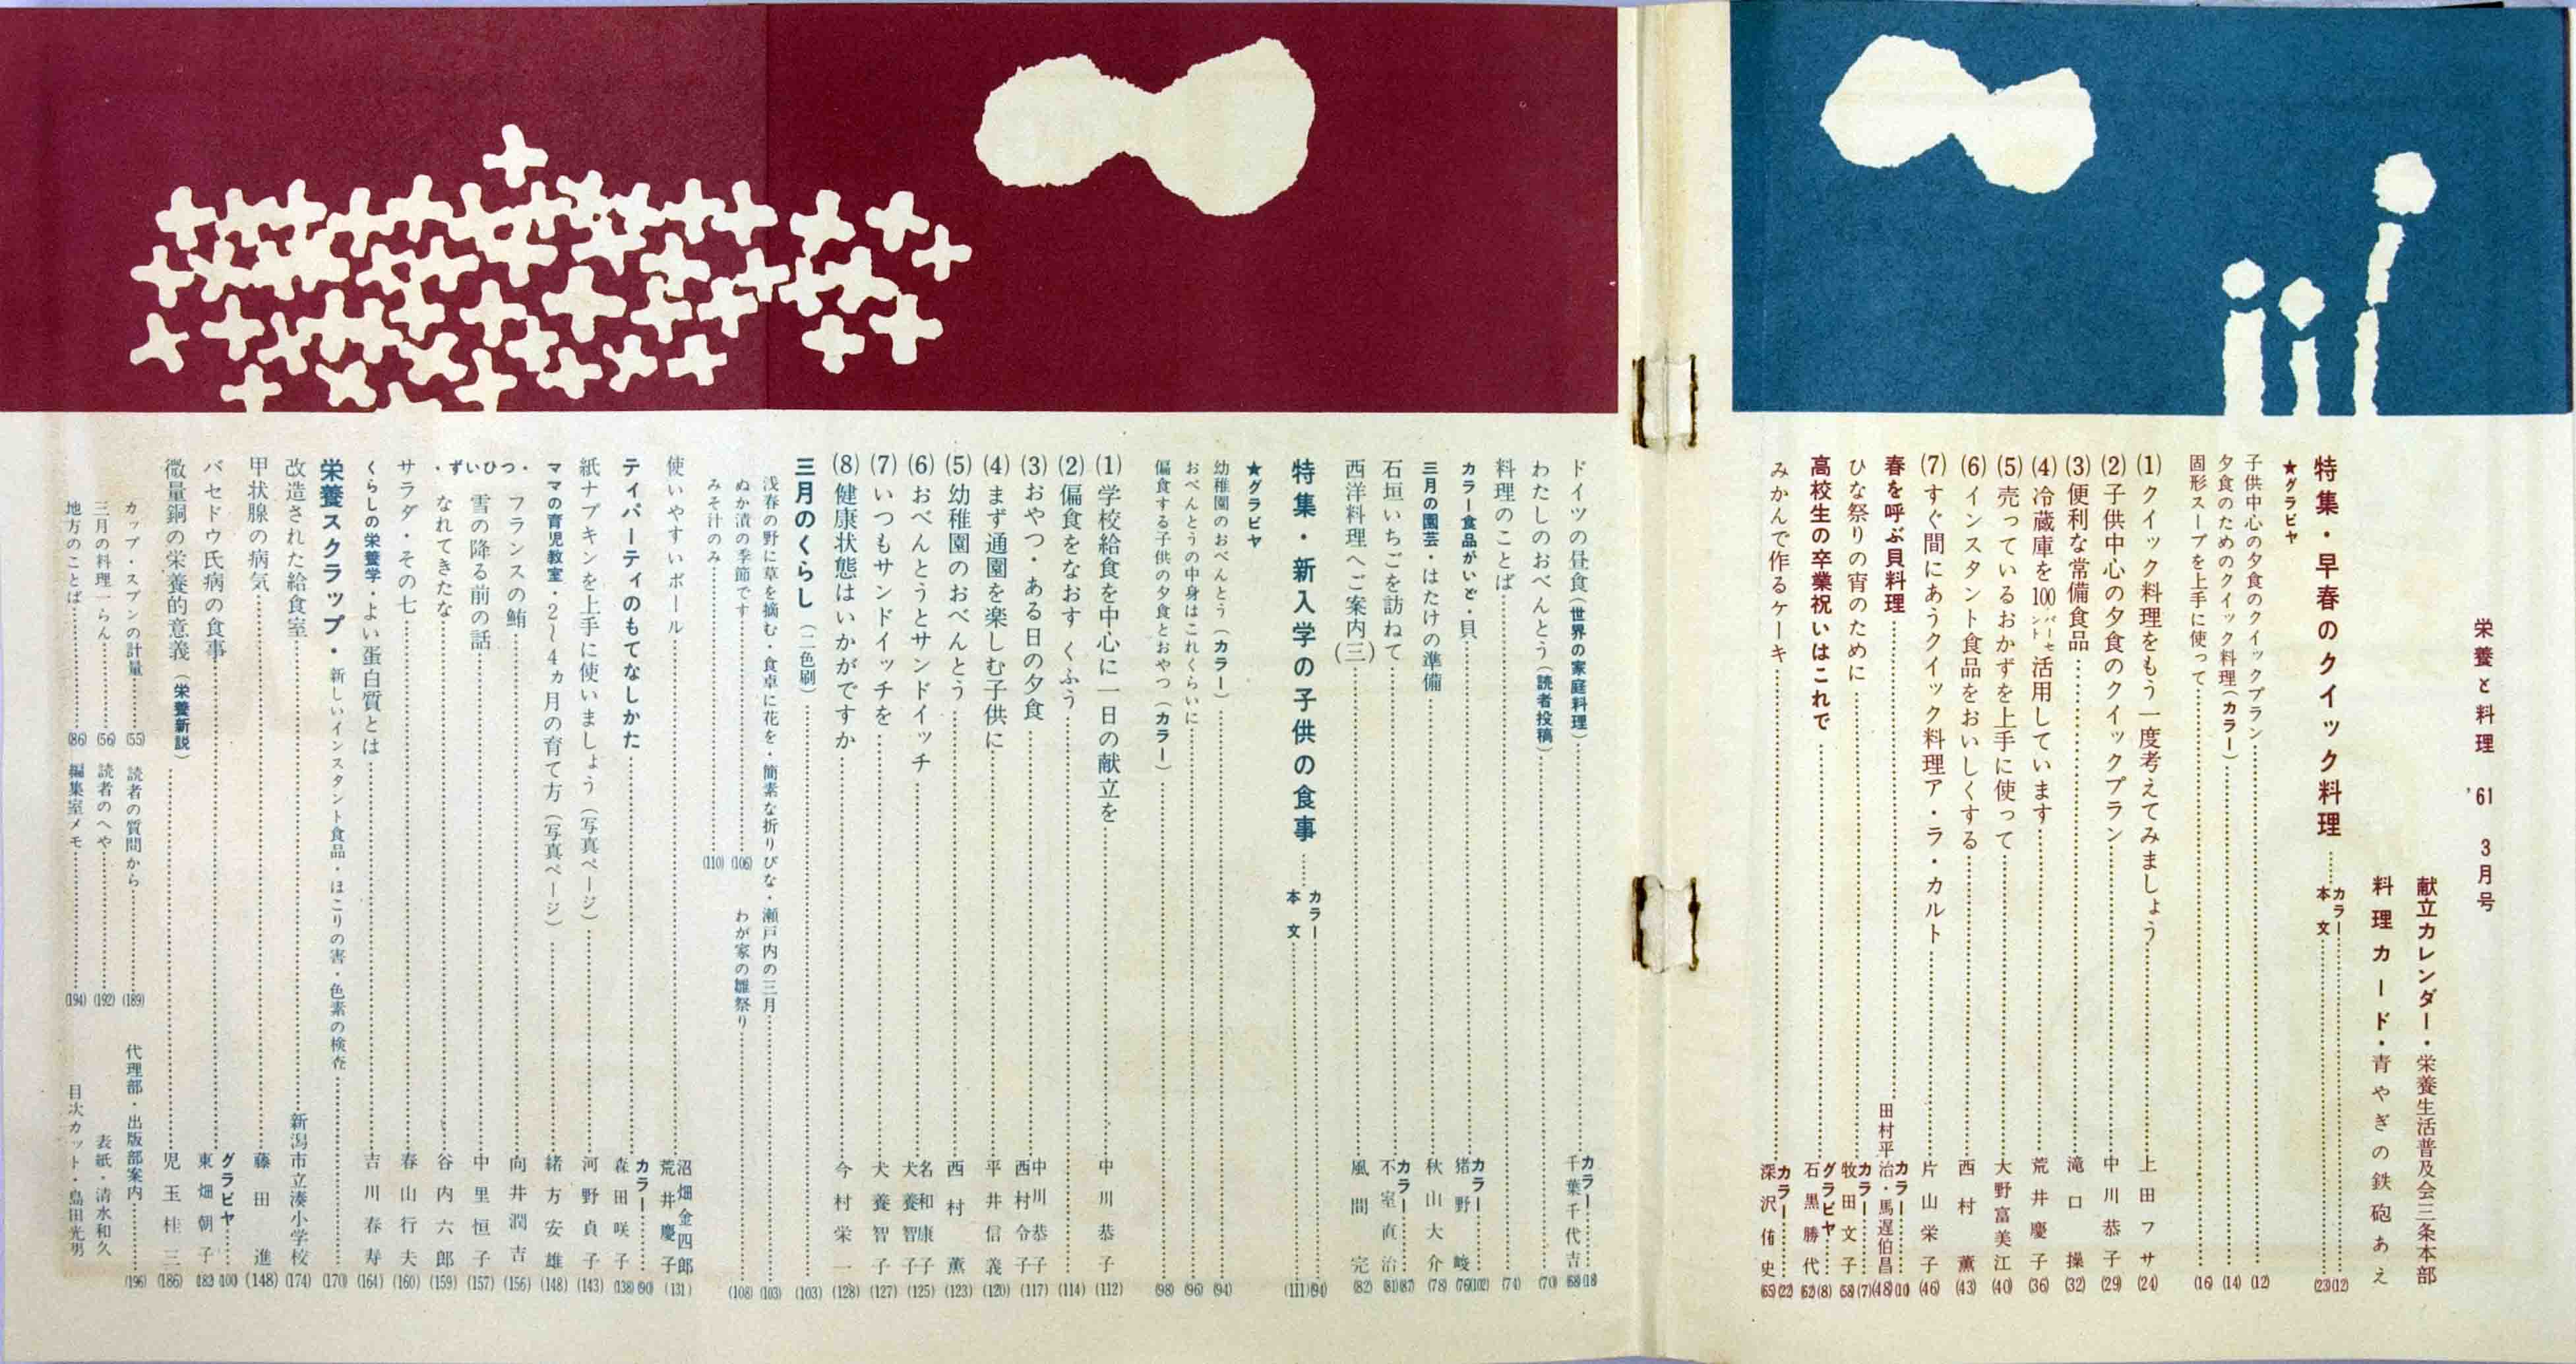 栄養と料理 '61 3月号
献立カレンダー・栄養生活普及会三条本部
料理カード・青やぎの鉄砲あえ
特集・早春のクイック料理……カラー(12) 本文(23)
★グラビヤ
子供中心の夕食のクイックプラン……(12)
夕食のためのクイック料理(カラー)……(14)
固形スープを上手に使って……(16)
(1)クイック料理をもう一度考えてみましょう……上田フサ(24)
(2)子供中心の夕食のクイックプラン……中川恭子(29)
(3)便利な常備食品……滝口操(32)
(4)冷蔵庫を100パーセント活用しています……荒井慶子(36)
(5)売っているおかずを上手に使って……大野富美江(40)
(6)インスタント食品をおいしくする……西村薫(43)
(7)すぐ間にあうクイック料理ア・ラ・カルト……片山栄子(46)
春を呼ぶ貝料理……田村平治・馬遅伯昌(48) カラー(10)
ひな祭りの宵のために……牧田文子(58) カラー(7)
高校生の卒業祝いはこれで……石黒勝代(62) グラビヤ(8)
みかんで作るケーキ……深沢侑史(65) カラー(22)
ドイツの昼食(世界の家庭料理)……千葉千代吉(68) カラー(18)
わたしのおべんとう(読者投稿)……(70)
料理のことば……(74)
カラー食品がいど・貝……猪野峻(76) カラー(102)
三月の園芸・はたけの準備……秋山大介(78)
石垣いちごを訪ねて……不室直治(81) カラー(87)
西洋料理へご案内(三)……風間完(82)
特集・新入学の子供の食事……カラー(94) 本文(111)
★グラビヤ
幼稚園のおべんとう(カラー)……(94)
おべんとうの中身はこれくらいに……(96)
偏食する子供の夕食とおやつ(カラー)……(98)
(1)学校給食を中心に一日の献立を……中川恭子(112)
(2)偏食をなおすくふう……(114)
(3)おやつ・ある日の夕食……中川恭子 西村令子(117)
(4)まず通園を楽しむ子供に……平井信義(120)
(5)幼稚園のおべんとう……西村薫(123)
(6)おべんとうとサンドイッチ……名和康子 犬養智子(125)
(7)いつもサンドイッチを……犬養智子(127)
(8)健康状態はいかがですか……今村栄一(128)
三月のくらし(二色刷)……(103)
浅春の野に草を摘む・食卓に花を・簡素な折りびな・瀬戸内の三月……(103)
ぬか漬の季節です……(106) わが家の雛祭り……(108)
みそ汁のみ……(110)
使いやすいボール……沼畑金四郎 荒井慶子(131)
ティパーティのもてなしかた……森田咲子(138) カラー(90)
紙ナプキンを上手に使いましょう(写真ページ)……河野貞子(143)
ママの育児教室・2〜4ヵ月の育て方(写真ページ)……緒方安雄(148)
・ずいひつ・
フランスの鮪……向井潤吉(156)
雪の降る前の話……中里恒子(157)
なれてきたな……谷内六郎(159)
サラダ・その七……春山行夫(160)
くらしの栄養学・よい蛋白質とは……吉川春寿(164)
栄養スクラップ・新しいインスタント食品・ほこりの害・色素の検査……(170)
改造された給食室……新潟市立湊小学校(174)
甲状腺の病気……藤田進(148)
バセドウ氏病の食事……東畑朝子(182) グラビヤ(100)
微量銅の栄養的意義(栄養新説)……児玉桂三(186)
カップ・スプンの計量……(55) 読者の質問から……(189) 代理部・出版部案内……(196)
三月の料理一らん……(56) 読者のへや……(192) 表紙・清水和久
地方のことば……(86) 編集室メモ……(194) 目次カット・島田光男